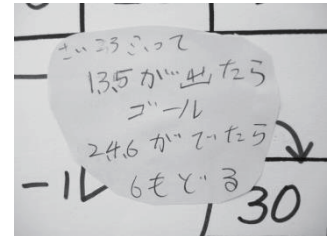 さいころふって
1,3,5が出たら
ゴール
2,4,6がでたら
6もどる
ール
30